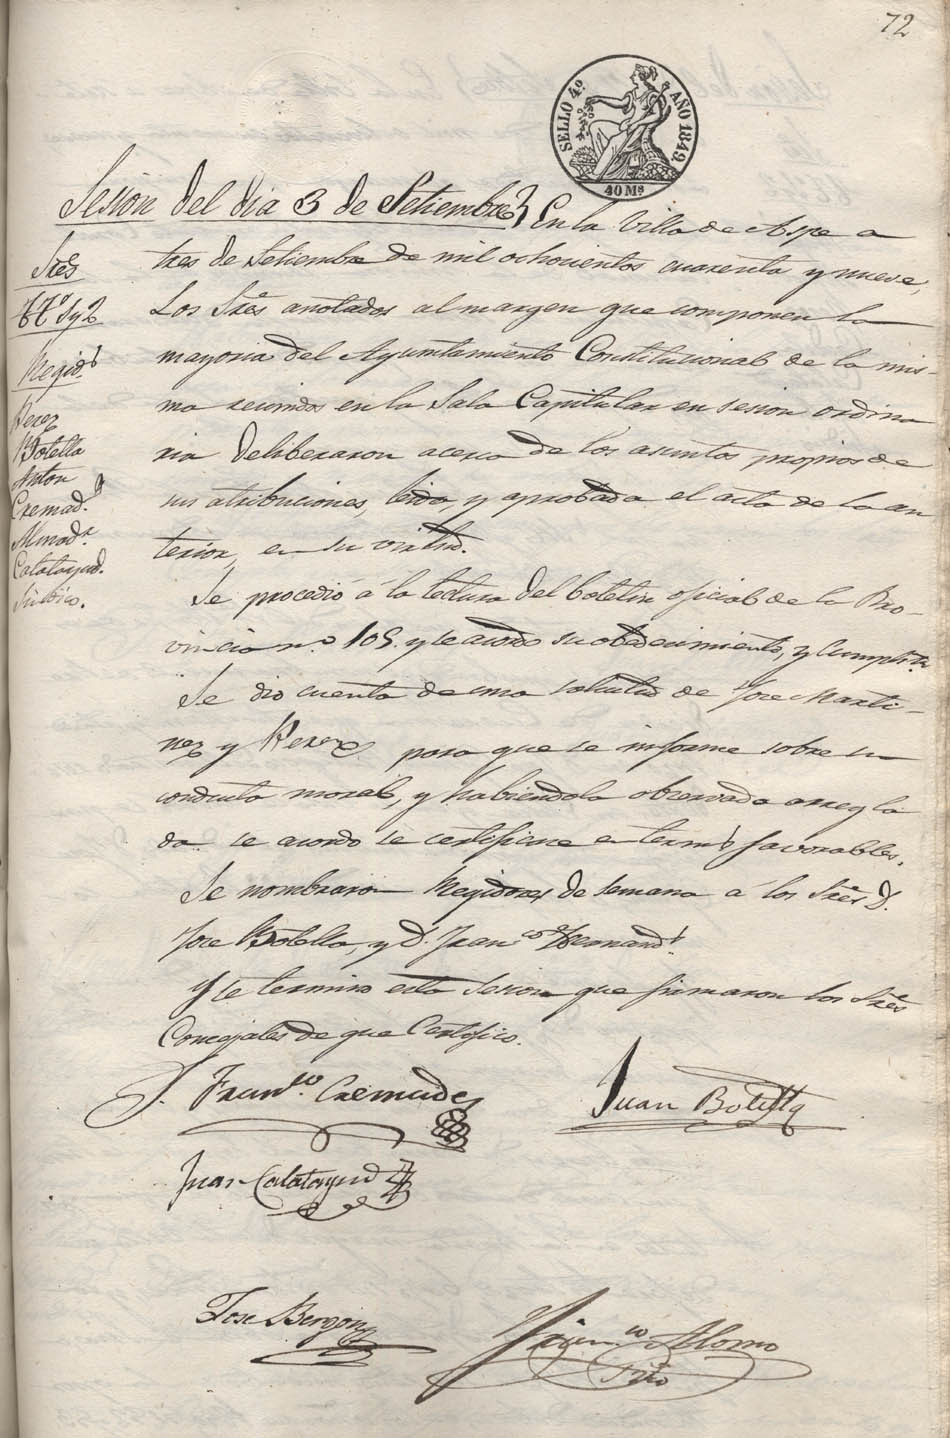 72
SELLO 4º AÑO 1849.
40 Ms
Sesion del dia 3 de Setiembre} En la Villa de Aspe a
tres de Setiembre de mil ochocientos cuarenta y nueve,
Los Sres anotados al margen que componen la
mayoria del Ayuntamiento Constitucional de la mis-
ma reunidos en la Sala Capitular en sesion ordina
ria deliberaron acerca de los asuntos propios de
sus atribuciones, leida, y aprobada el acta de la an
terior, en su virtud.
Se procedió á la lectura del boletin oficial de la Pro-
vincia n.º 105. y se acordo su obedecimiento, y cumplim.to
Se dio cuenta de una solicitud de Jose Marti-
nez y Perez para que se informe sobre su
conducta moral, y habiendola observado arregla
da se acordo se certifique en terms favorables.
Se nombraron Regidores de semana a los Sres D.
Jose Botella, y D. Fran.co
Y se termino esta sesion que firmaron los Sres
Concejales de que Certifico.
Sres
TT.s 1º y 2
Regid.s
Perez
Botella
Anton
Cremad.s
Almod.r
Calatayud.
Sindico.
Fran.co Cremades
Juan Botella
Juan Calatayud
Jose
Fran.co Alonso
Srio